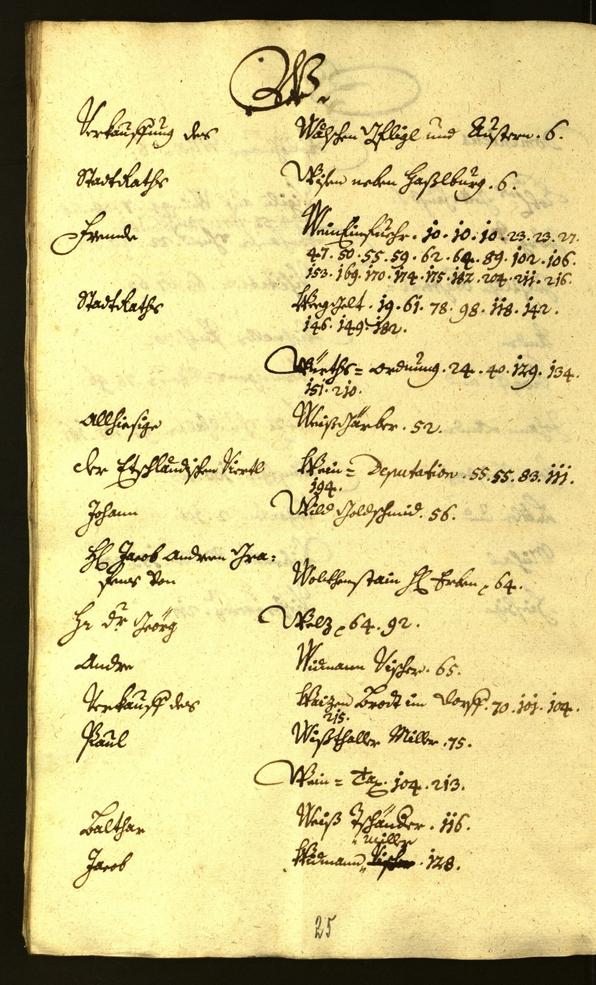 W.
Verkauffung des Wälschen Gfligl und Austern. 6.
StadtRaths Wisen neben Haßlburg. 6.
Fremde WeinEinfuehr. 10. 10. 10. 23. 23. 27.
47. 50. 55. 59. 62. 64. 89. 102. 106.
153. 169. 170. 174. 175. 182. 204. 211. 216.
StadtRaths Weggelt. 19. 61. 78. 98. 118. 142.
146. 149. 182.
Würths= ordnung. 24. 40. 129. 134.
151. 210.
Allhiesige Weißgärber. 52.
der Etschländischen Viertl Wein= Deputation. 55. 55. 83. 111.
194.
Johann Wild Goldschmid. 56.
H Jacob Andreen Gra=
fens von Wolckhenstain H Erben, 64.
Hr Dr Geörg Welz, 64. 92.
Andre Widmann Vischer. 65.
Verkauff des Waizen Brodt im Dorff. 70. 101. 104.
215.
Paul Wißthaller Miller. 75.
Wein= Tax. 104. 213.
Balthar Weiß Tschänder. 116.
miller
Jacob Widmann, Vischer. 128.
25